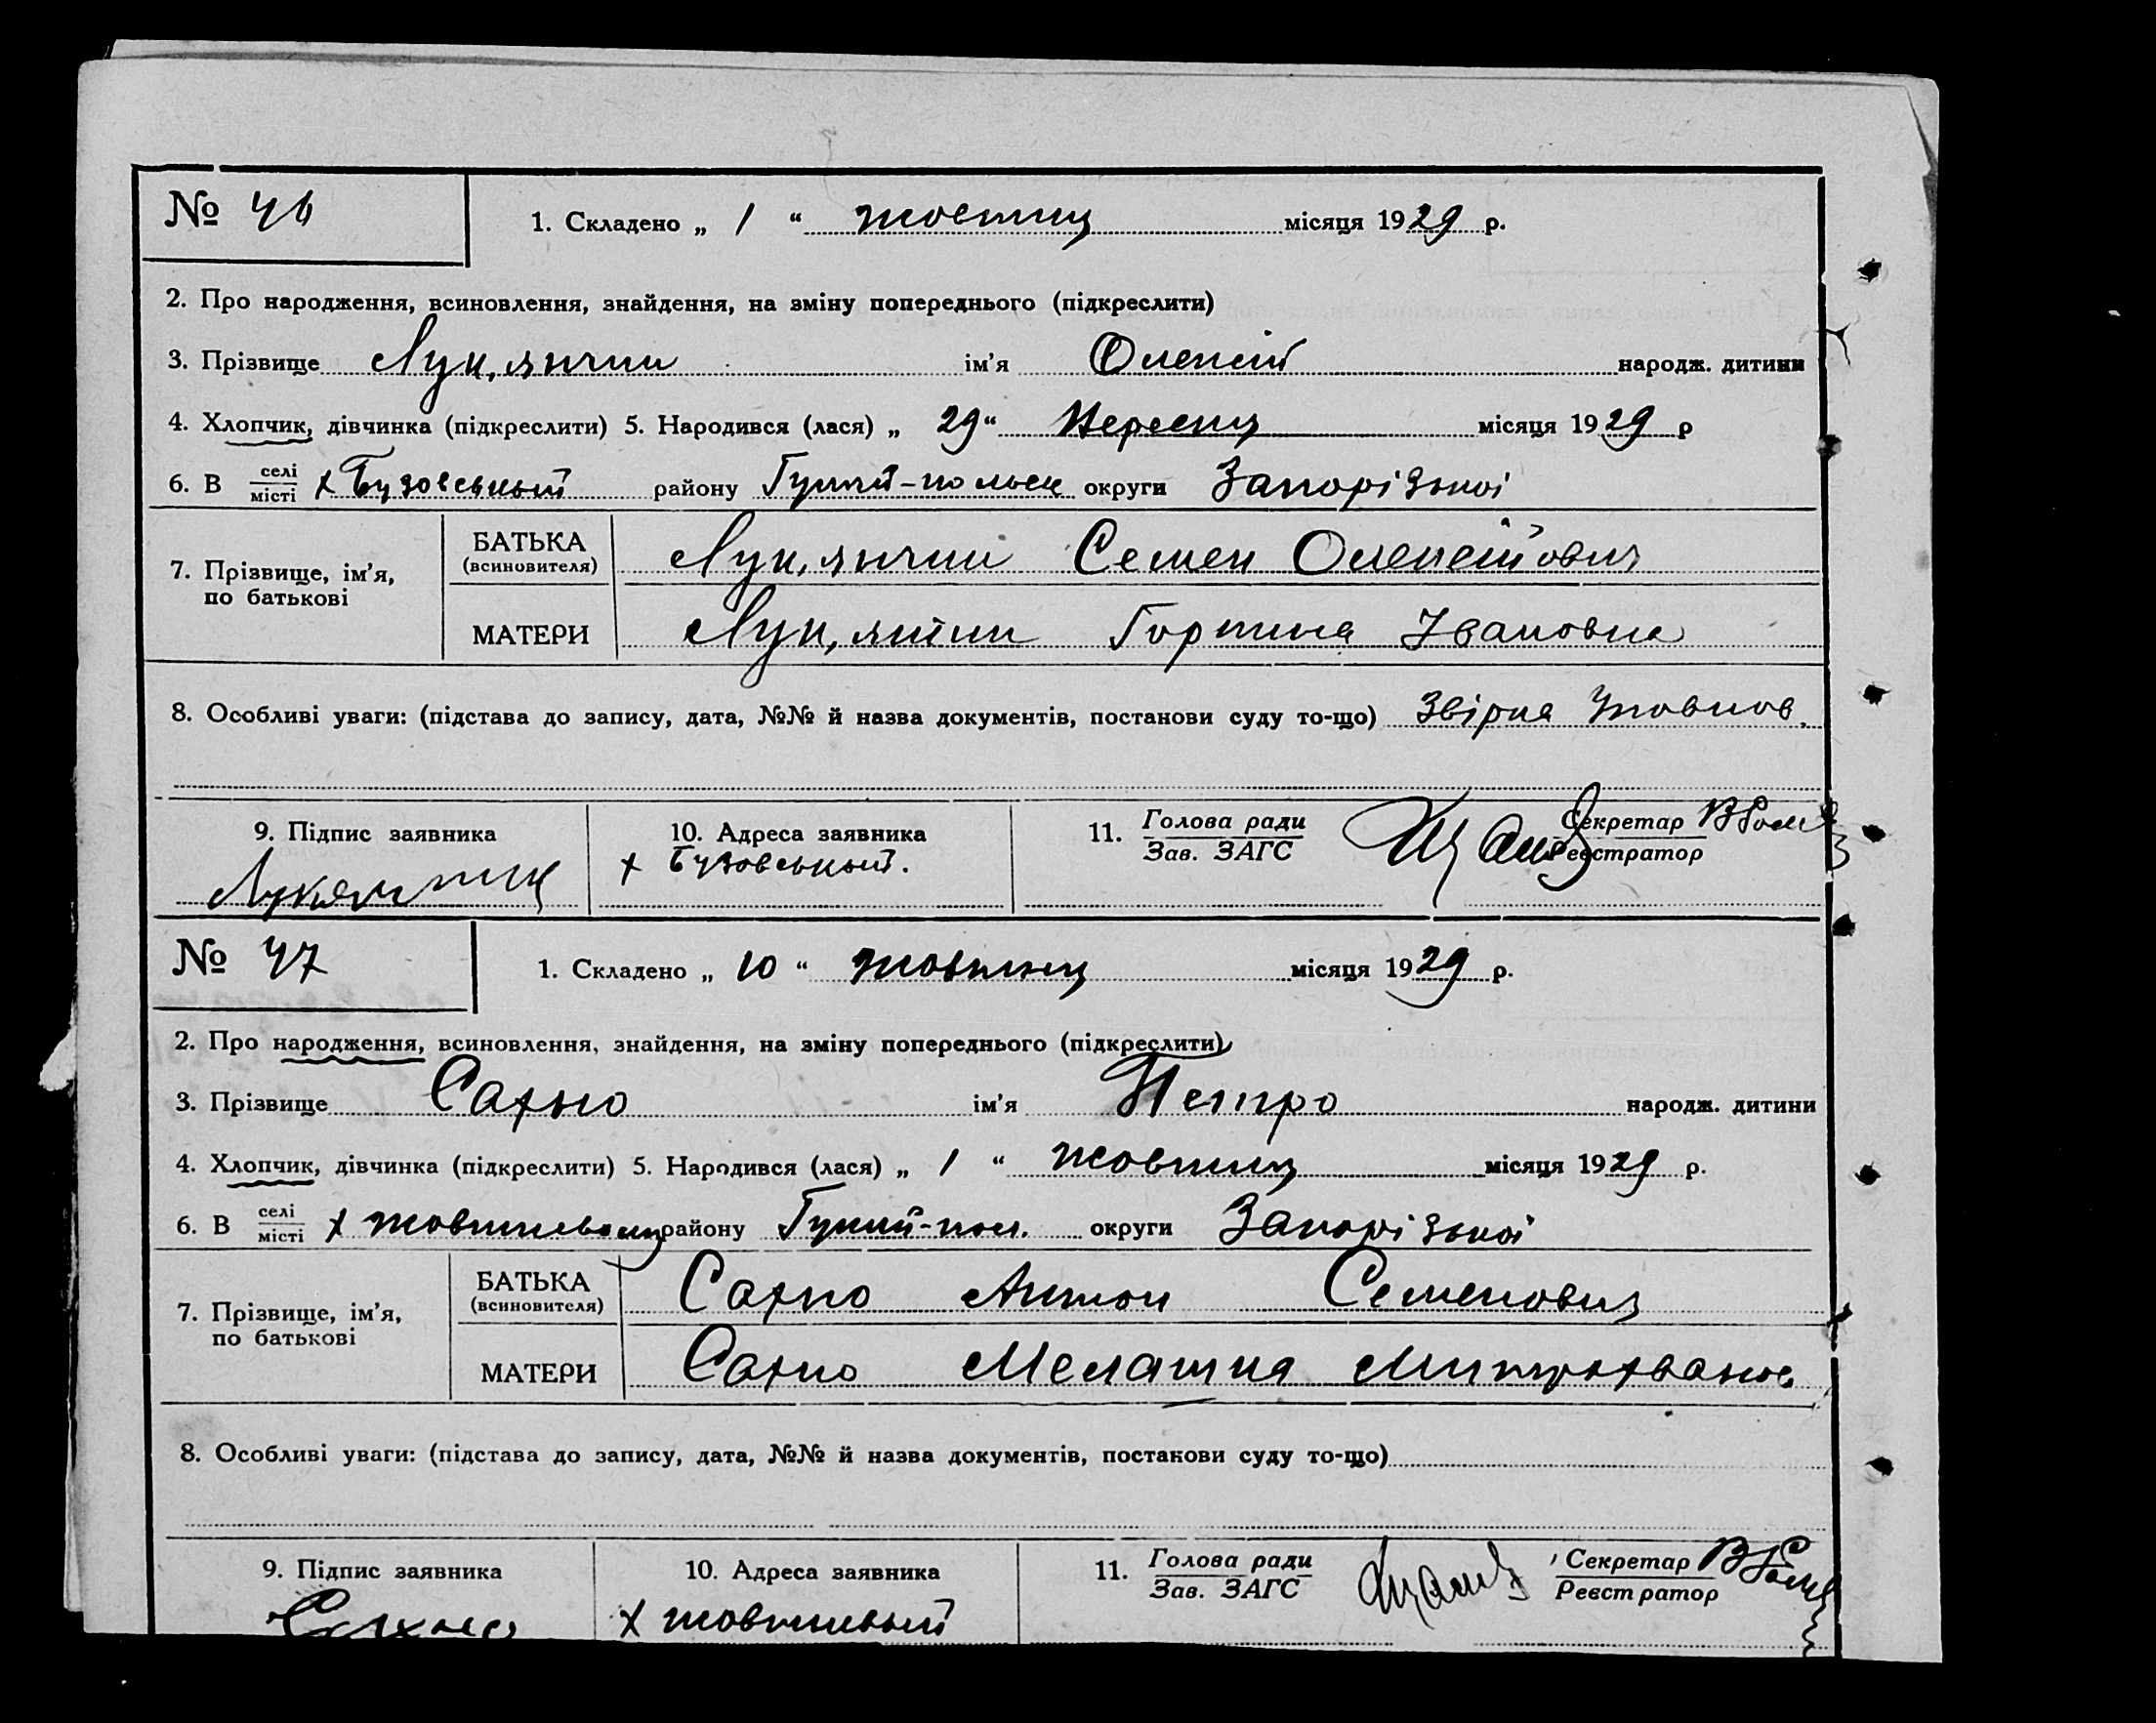 № 46 1. Складено „ 1 “ жовтня місяця 1929 р.
2. Про народження, всиновлення, знайдення, на зміну попереднього (підкреслити)
3. Прізвище Лук,янчик ім'я Олексій народж. дитини
4. Хлопчик, дівчинка (підкреслити) 5. Народився (лася) „ 29 “ Вересня місяця 1929 р
6. В селі місті х Бузовський району Гуляй-польск округи Запорізької
7. Прізвище, ім'я, по батькові
БАТЬКА (всиновителя) Лук,янчик Семен Олексійович
МАТЕРИ Горпина Івановна
8. Особливі уваги: (підстава до запису, дата, №№ й назва документів, постанови суду то-що) Звірна
9. Підпис заявника 10. Адреса заявника 11. Голова ради Зав. ЗАГС Секретар Реєстратор
х Бузовський.
№ 47 1. Складено „ 10 “ жовтня місяця 1929 р.
2. Про народження, всиновлення, знайдення, на зміну попереднього (підкреслити)
3. Прізвище Сахно ім'я Петро народж. дитини
4. Хлопчик, дівчинка (підкреслити) 5. Народився (лася) „ 1 “ жовтня місяця 1929 р.
6. В селі місті х району Гуляй-пол. округи Запорізької
7. Прізвище, ім'я, по батькові
БАТЬКА (всиновителя) Сахно Антон Семенович
МАТЕРИ Сахно Мелашка
8. Особливі уваги: (підстава до запису, дата, №№ й назва документів, постанови суду то-що)
9. Підпис заявника 10. Адреса заявника 11. Голова ради Зав. ЗАГС Секретар Реєстратор
Сахно х